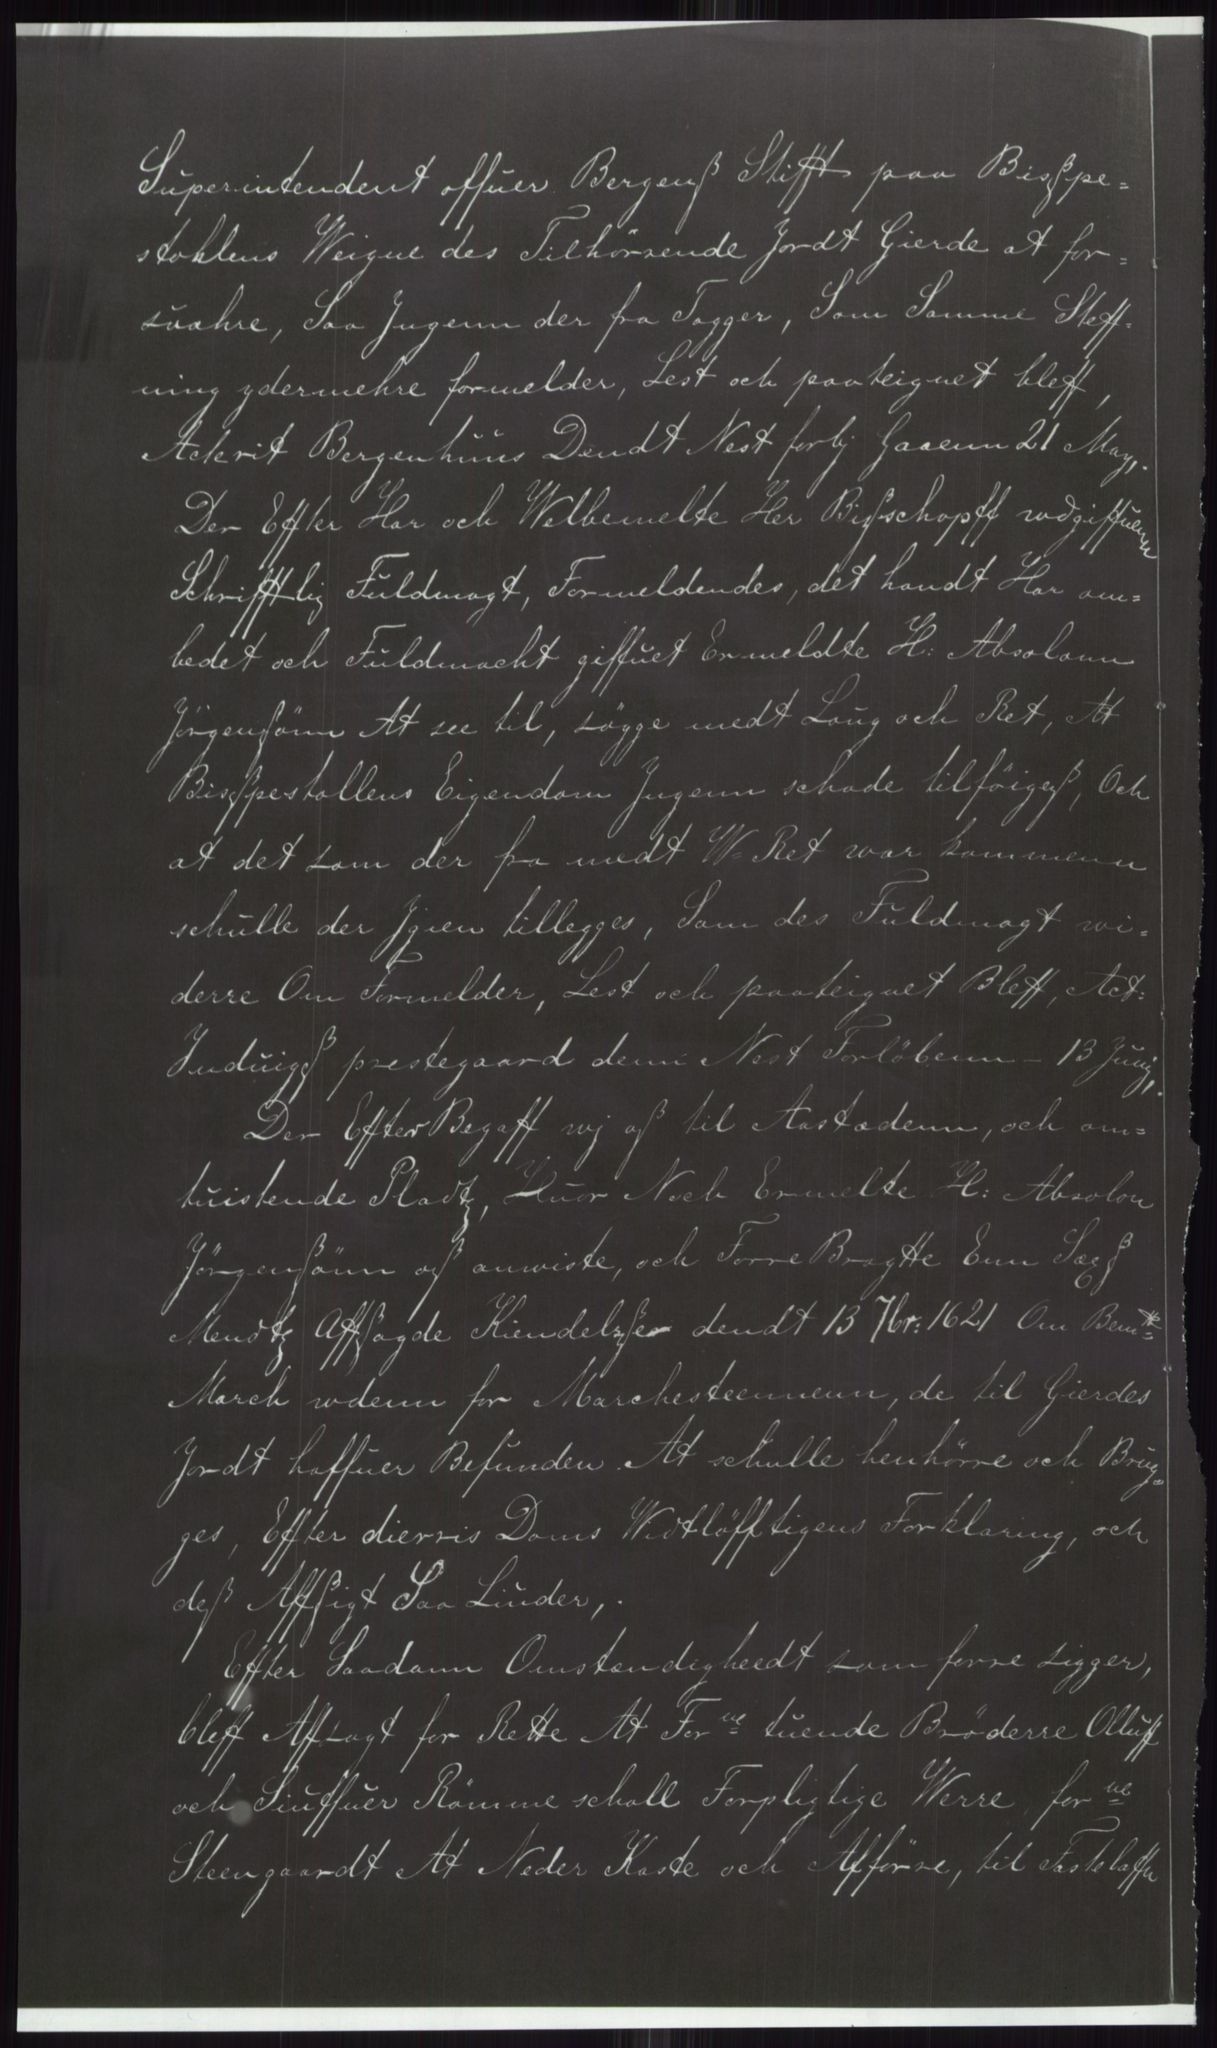 Superintendent offuer Bergenß Stifft paa Bisßpe=
stohlens Weigne des Tilhörrende Jordt Gierde at for=
suahre, Saa Jngenn der fra Tagger, Som Samme Steff=
ning ydermehre formelder, Lest och paateignet bleff,
Ackrit Bergenhuus Dendt Nest forbj Gaaenn 21 May,.
Der Effter Har och Welbemelte Her Bißschopff wdgiffuenn
Schrifftlig Fuldmagt, Formeldendes, det handt Har om=
bedet och Fuldmacht giffuet Ermeldte H: Absolonn
Jörgenßönn At see til, søgge medt Loug och Ret, At
Bisßpestollens Eigendom Jngenn schade tilföigeß, Och
at det som der fra medt W=Ret war kommenn
schulle der Jgien tillegges, Som des Fuldmagt wi=
derre Om Formelder, Lest och paateignet Bleff, Act:
Induigß prestegaard denn Nest Forlöbenn - 13 Junj,.
Der Efter Begaff wj oß til Aastædenn, och om=
tuistende Pladtz, Huor Noch Ermelte H: Absolon
Jörgenßönn oß anwiste, och Forre Bragtte Enn Sæxß
Mendtz Affßagde Kiendelsße dendt 13 7br: 1621 Om Bemte=
March wdenn for Marchesteennenn, de til Gierdes
Jordt haffuer Befunden At schulle henhörre och Brug=
ges, Effter dierris Doms Widtløfftigens Forklaring, och
deß Affßigt Saa Liuder,.
Effter Saadann Omstændigheedt som forre ligger,
bleff Affsagt for Rette At Forne tuende Bröderre Olluff
och Siuffuer Römme schall Forpligtige Werre, forne
Steengaardt At Neder Kaste och Afförre, til Fastelaffn